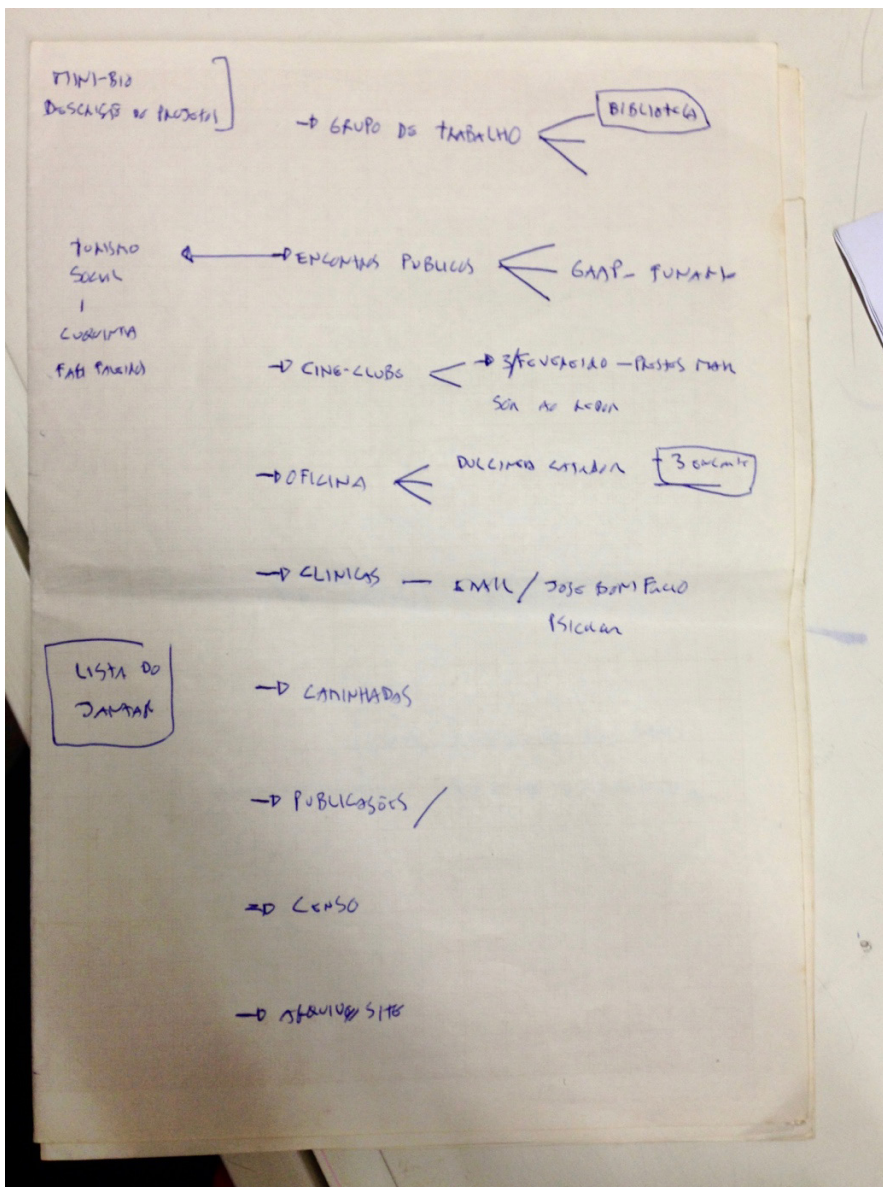 MINI-BIO
DESCRIÇÃO DE PROJETOS
→ GRUPO DE TRABALHO
BIBLIOTECA
TURISMO
SOCIAL
→ ENCONTROS PUBLICOS
GAAP - FUNARTE
→ CINE-CLUBE
→ 3/FEVEREIRO - PRESTES MAIA
SOM AO REDOR
→ OFICINA
DULCINEIA CATADORA
+ 3
→ CLINICAS — EMAIL / JOSE BONIFACIO
LISTA DO
JANTAR
→ CAMINHADAS
→ PUBLICAÇÕES /
→ CENSO
→ ARQUIVO SITE